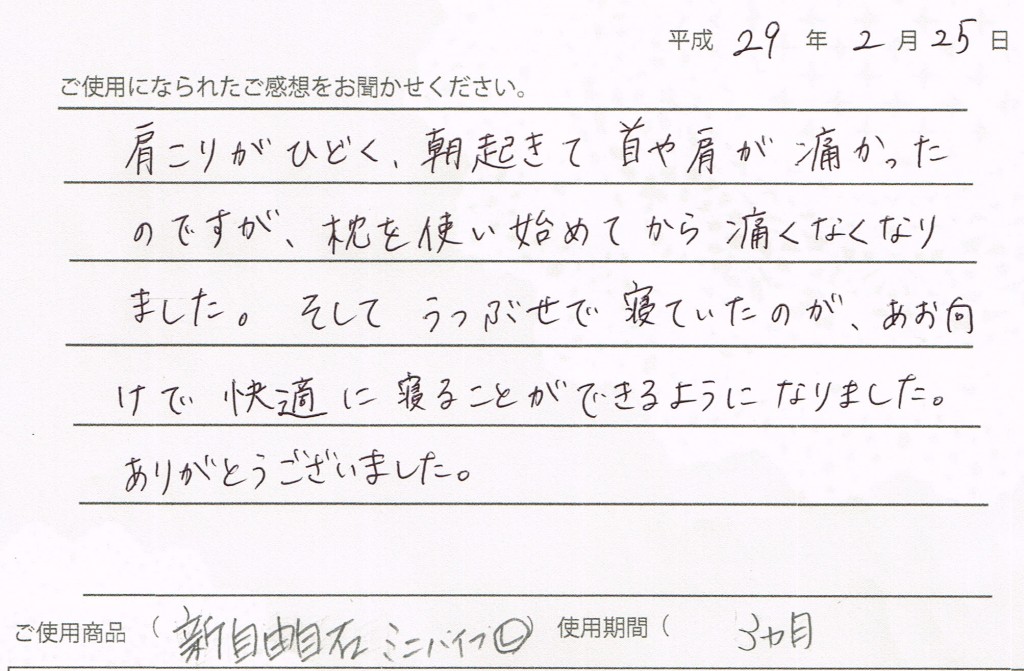 平成 29 年 2 月 25 日
ご使用になられたご感想をお聞かせください。
肩こりがひどく、朝起きて首や肩が痛かった
のですが、枕を使い始めてから痛くなくなり
ました。そしてうつぶせで寝ていたのが、あお向
けで快適に寝ることができるようになりました。
ありがとうございました。
ご使用商品 ( ミニパイプⓁ) 使用期間 ( 3ヵ月